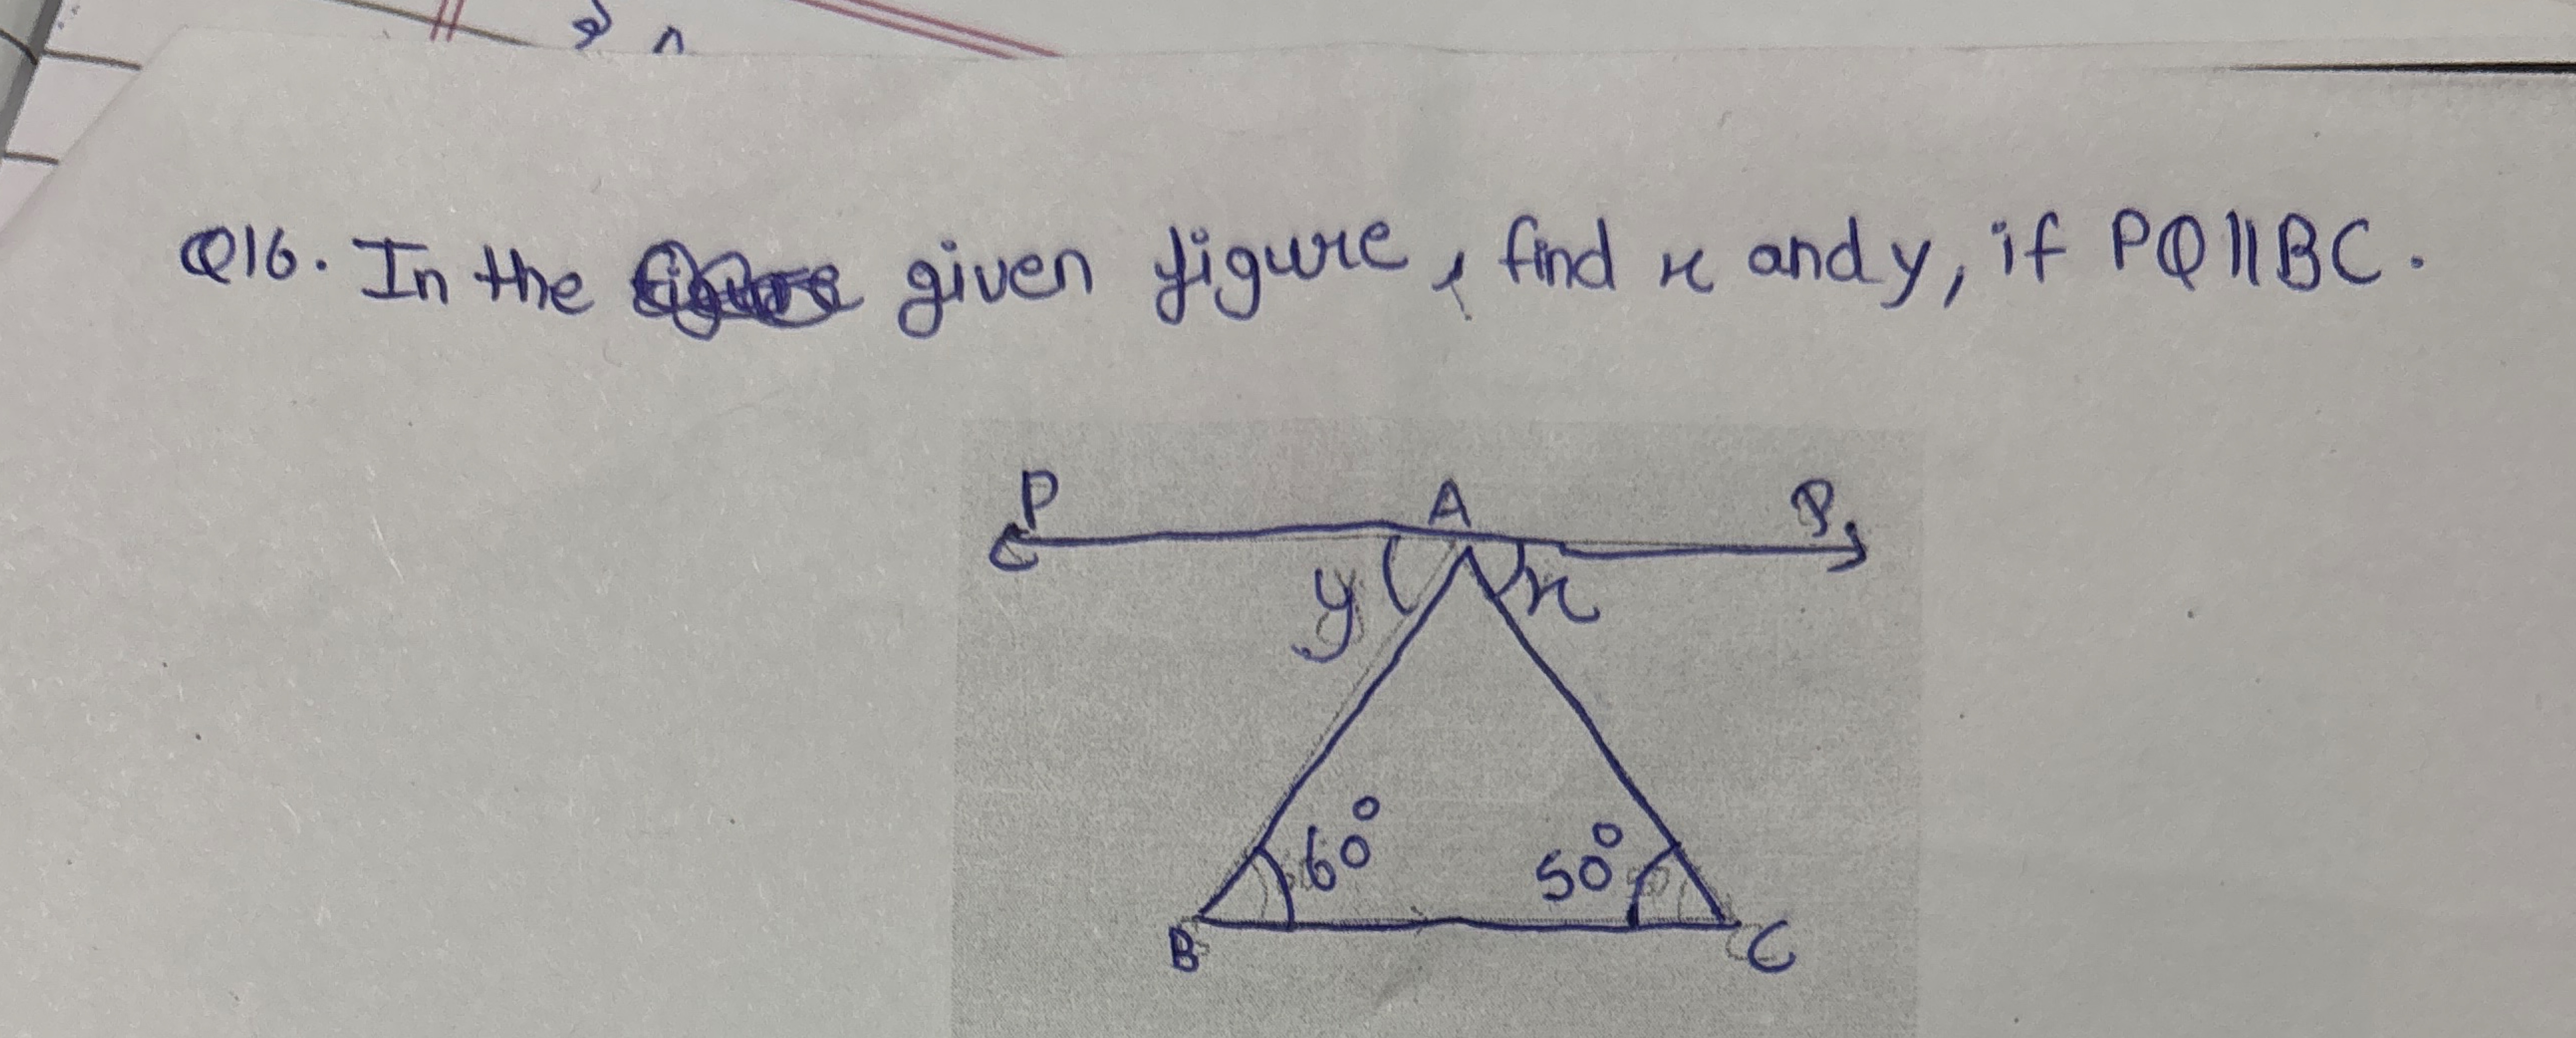 Q16. In the given figure, find x and y, if PQ||BC.
P A P
y x
60° 50°
B C